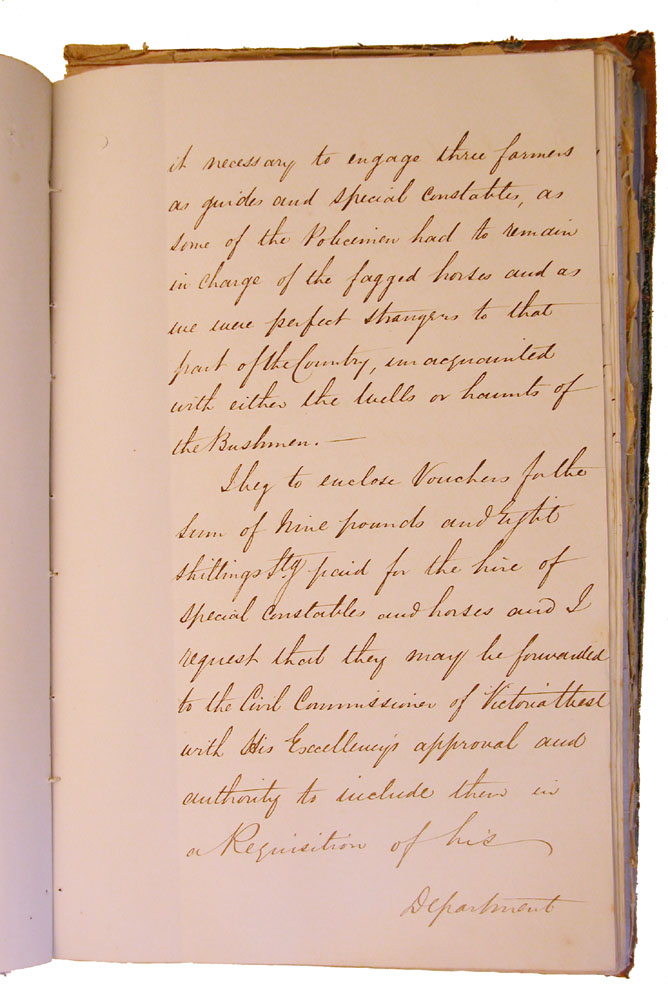 it necessary to engage three farmers
as guides and special constables, as
some of the Policemen had to remain
in charge of the fagged horses and as
we were perfect strangers to that
part of the Country, unacquainted
with either the Wells or haunts of
the Bushmen. —
I beg to enclose Vouchers for the
sum of Nine pounds and Eight
shillings Stg paid for the hire of
special constables and horses and I
request that they may be forwarded
to the Civil Commissioner of Victoria West
with His Excellency's approval and
authority to include them in
a Requisition of his
Department